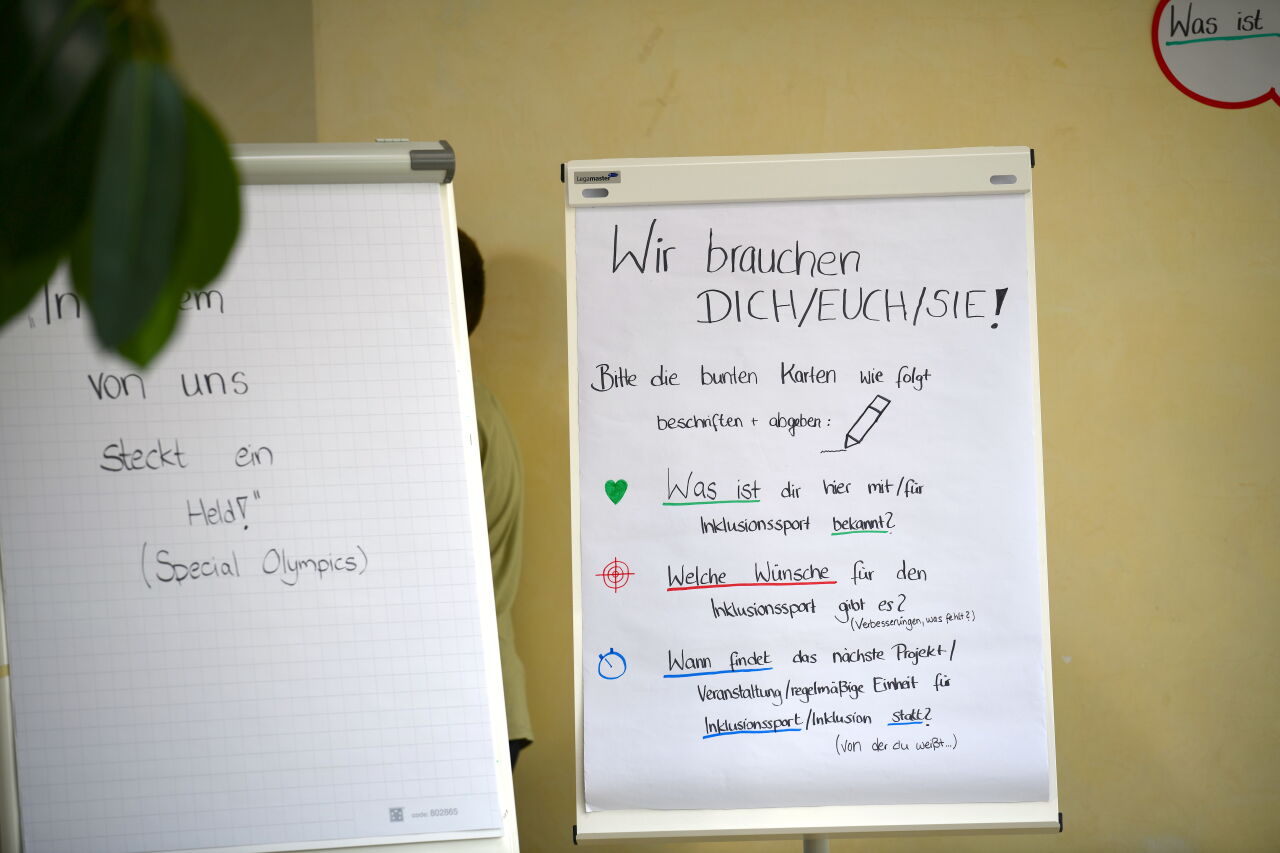 „In em
von uns
steckt ein
Held!"
(Special Olympics)
code: 802865
Legamaster
Wir brauchen
DICH/EUCH/SIE!
Bitte die bunten Karten wie folgt
beschriften + abgeben:
Was ist dir hier mit/für
Inklusionssport bekannt?
Welche Wünsche für den
Inklusionssport gibt es?
(Verbesserungen, was fehlt?)
Wann findet das nächste Projekt/
Veranstaltung/regelmäßige Einheit für
Inklusionssport/Inklusion statt?
(von der du weißt...)
Was ist